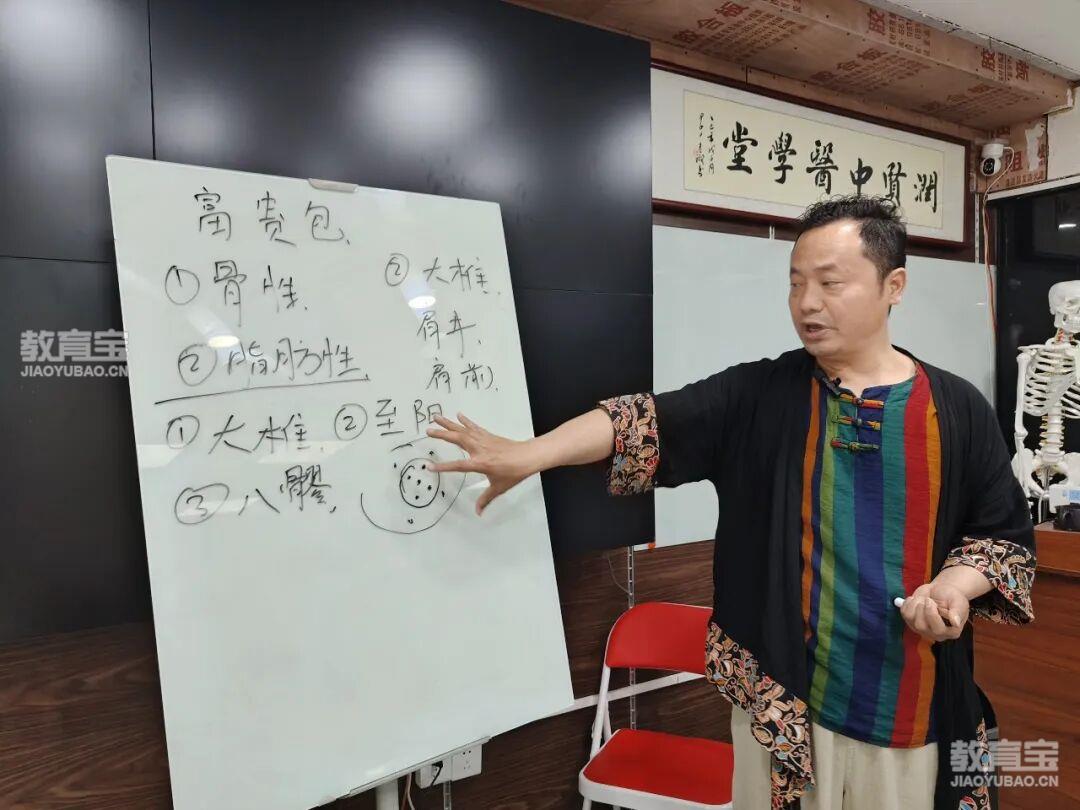 富贵包
①骨性
②脂肪性
①大椎 ②至阳
③八髎
②大椎
肩井
肩前
潤賢中醫學堂
教育宝
JIAOYUBAO.CN
教育宝
JIAOYUBAO.CN